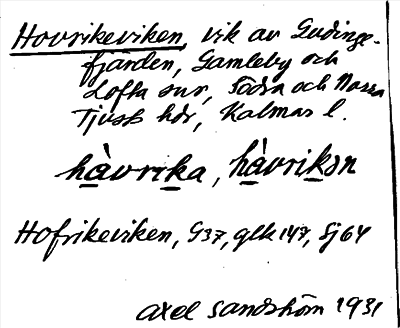 Hovrikeviken, vik av Gudinge-
fjärden, Gamleby och
Lofta snr, Södra och Norra
Tjust hdr, Kalmar l.
hàvrika, hàvrikən
Hofrikeviken, G37, glk 147, Sj 64
Axel Sandström 1931